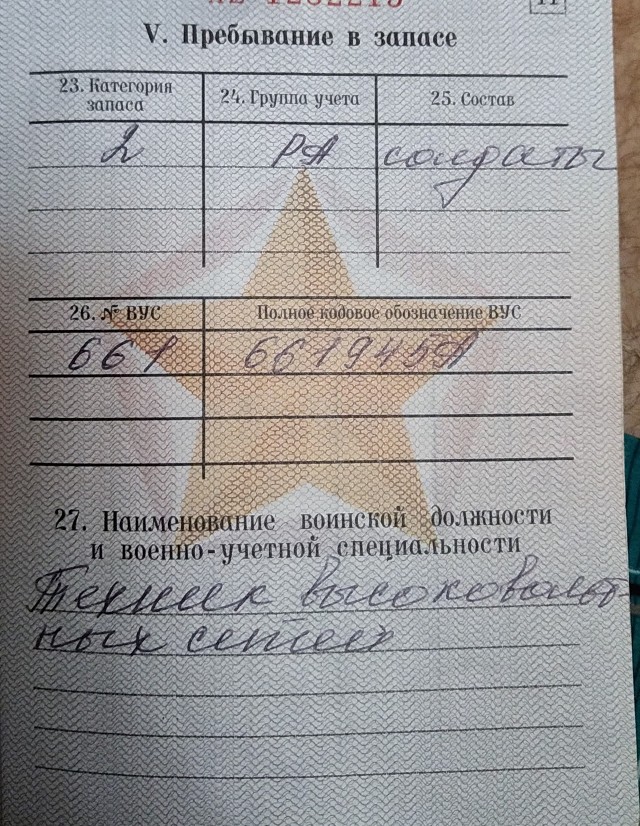 V. Пребывание в запасе
23. Категория запаса
24. Группа учета
25. Состав
2 РА солдаты
26. № ВУС
Полное кодовое обозначение ВУС
661 661945А
27. Наименование воинской должности
и военно-учетной специальности
Техник высоковольт
ных сетей